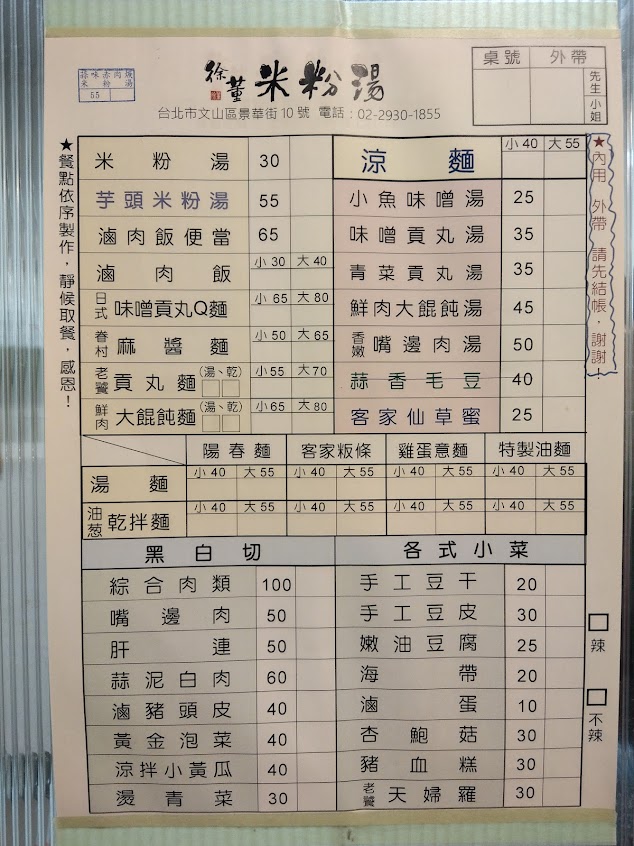 蒜味赤肉焿
米粉湯
55
徐董 米粉湯
台北市文山區景華街10號 電話：02-2930-1855
桌號 外帶
先生
小姐
★餐點依序製作，靜候取餐，感恩！
★內用 外帶 請先結帳，謝謝！
米粉湯 30
芋頭米粉湯 55
滷肉飯便當 65
滷肉飯 小30 大40
日式 味噌貢丸Q麵 小65 大80
眷村 麻醬麵 小50 大65
老饕 貢丸麵 (湯、乾) 小55 大70
鮮肉 大餛飩麵 (湯、乾) 小65 大80
涼麵 小40 大55
小魚味噌湯 25
味噌貢丸湯 35
青菜貢丸湯 35
鮮肉大餛飩湯 45
香嫩 嘴邊肉湯 50
蒜香毛豆 40
客家仙草蜜 25
陽春麵 客家粄條 雞蛋意麵 特製油麵
湯麵 小40 大55 小40 大55 小40 大55 小40 大55
油葱 乾拌麵 小40 大55 小40 大55 小40 大55 小40 大55
黑白切
綜合肉類 100
嘴邊肉 50
肝連 50
蒜泥白肉 60
滷豬頭皮 40
黃金泡菜 40
涼拌小黃瓜 40
燙青菜 30
各式小菜
手工豆干 20
手工豆皮 30
嫩油豆腐 25
海帶 20
滷蛋 10
杏鮑菇 30
豬血糕 30
老饕 天婦羅 30
辣
不辣